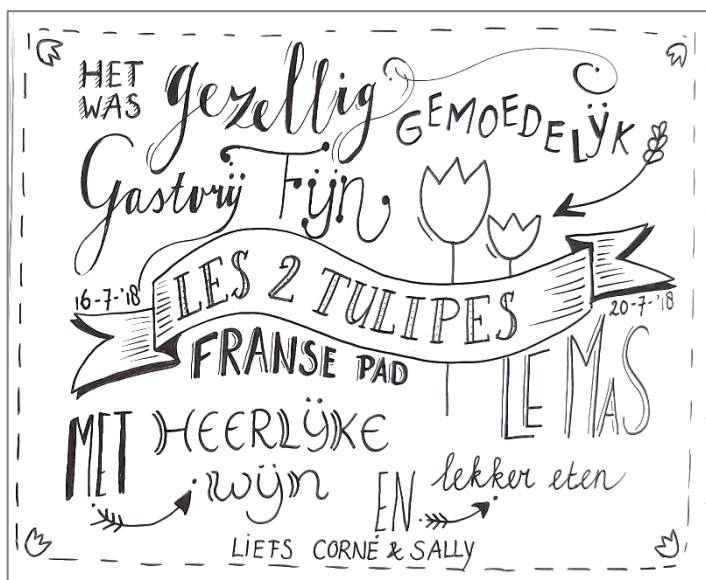 HET WAS gezellig GEMOEDELIJK
Gastvrij Fijn
LES 2 TULIPES
16-7-'18
20-7-'18
FRANSE PAD
LE MAS
MET HEERLIJKE
wijn
EN lekker eten
LIEFS CORNÉ & SALLY